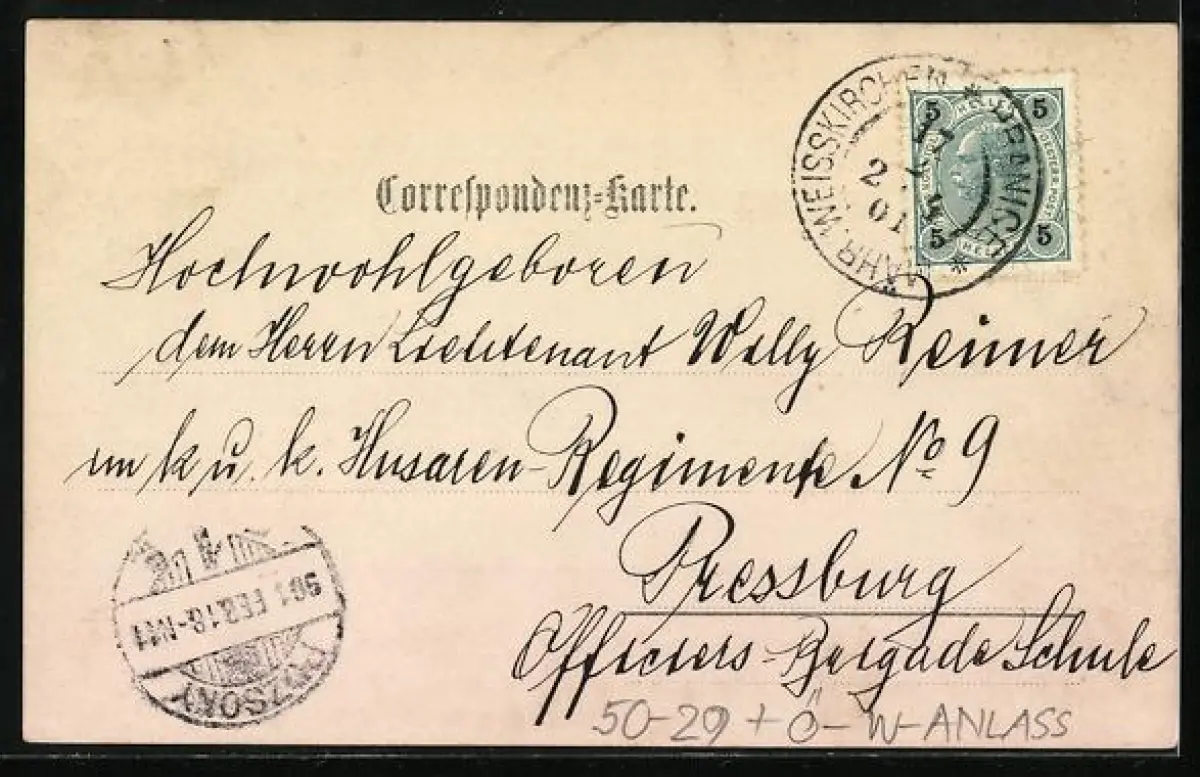 Correspondenz-Karte.
MÄHR. WEISSKIRCHEN * BRANICE *
17 2 01
5 HELLER 5
5 HELLER 5
Hochwohlgeboren
dem Herrn Lieutenant Willy Reimer
im k u. k. Husaren-Regimente No 9
Pressburg
Officiers-Brigade Schule
901 FEB 18-N11
POZSONY
50-29 + Ö-W-ANLASS